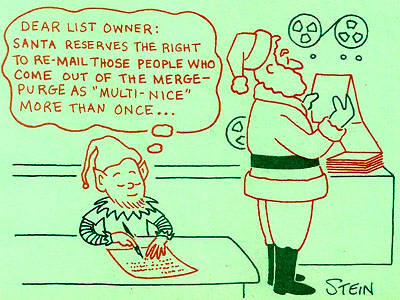 DEAR LIST OWNER:
SANTA RESERVES THE RIGHT
TO RE-MAIL THOSE PEOPLE WHO
COME OUT OF THE MERGE-
PURGE AS "MULTI-NICE"
MORE THAN ONCE...
STEIN